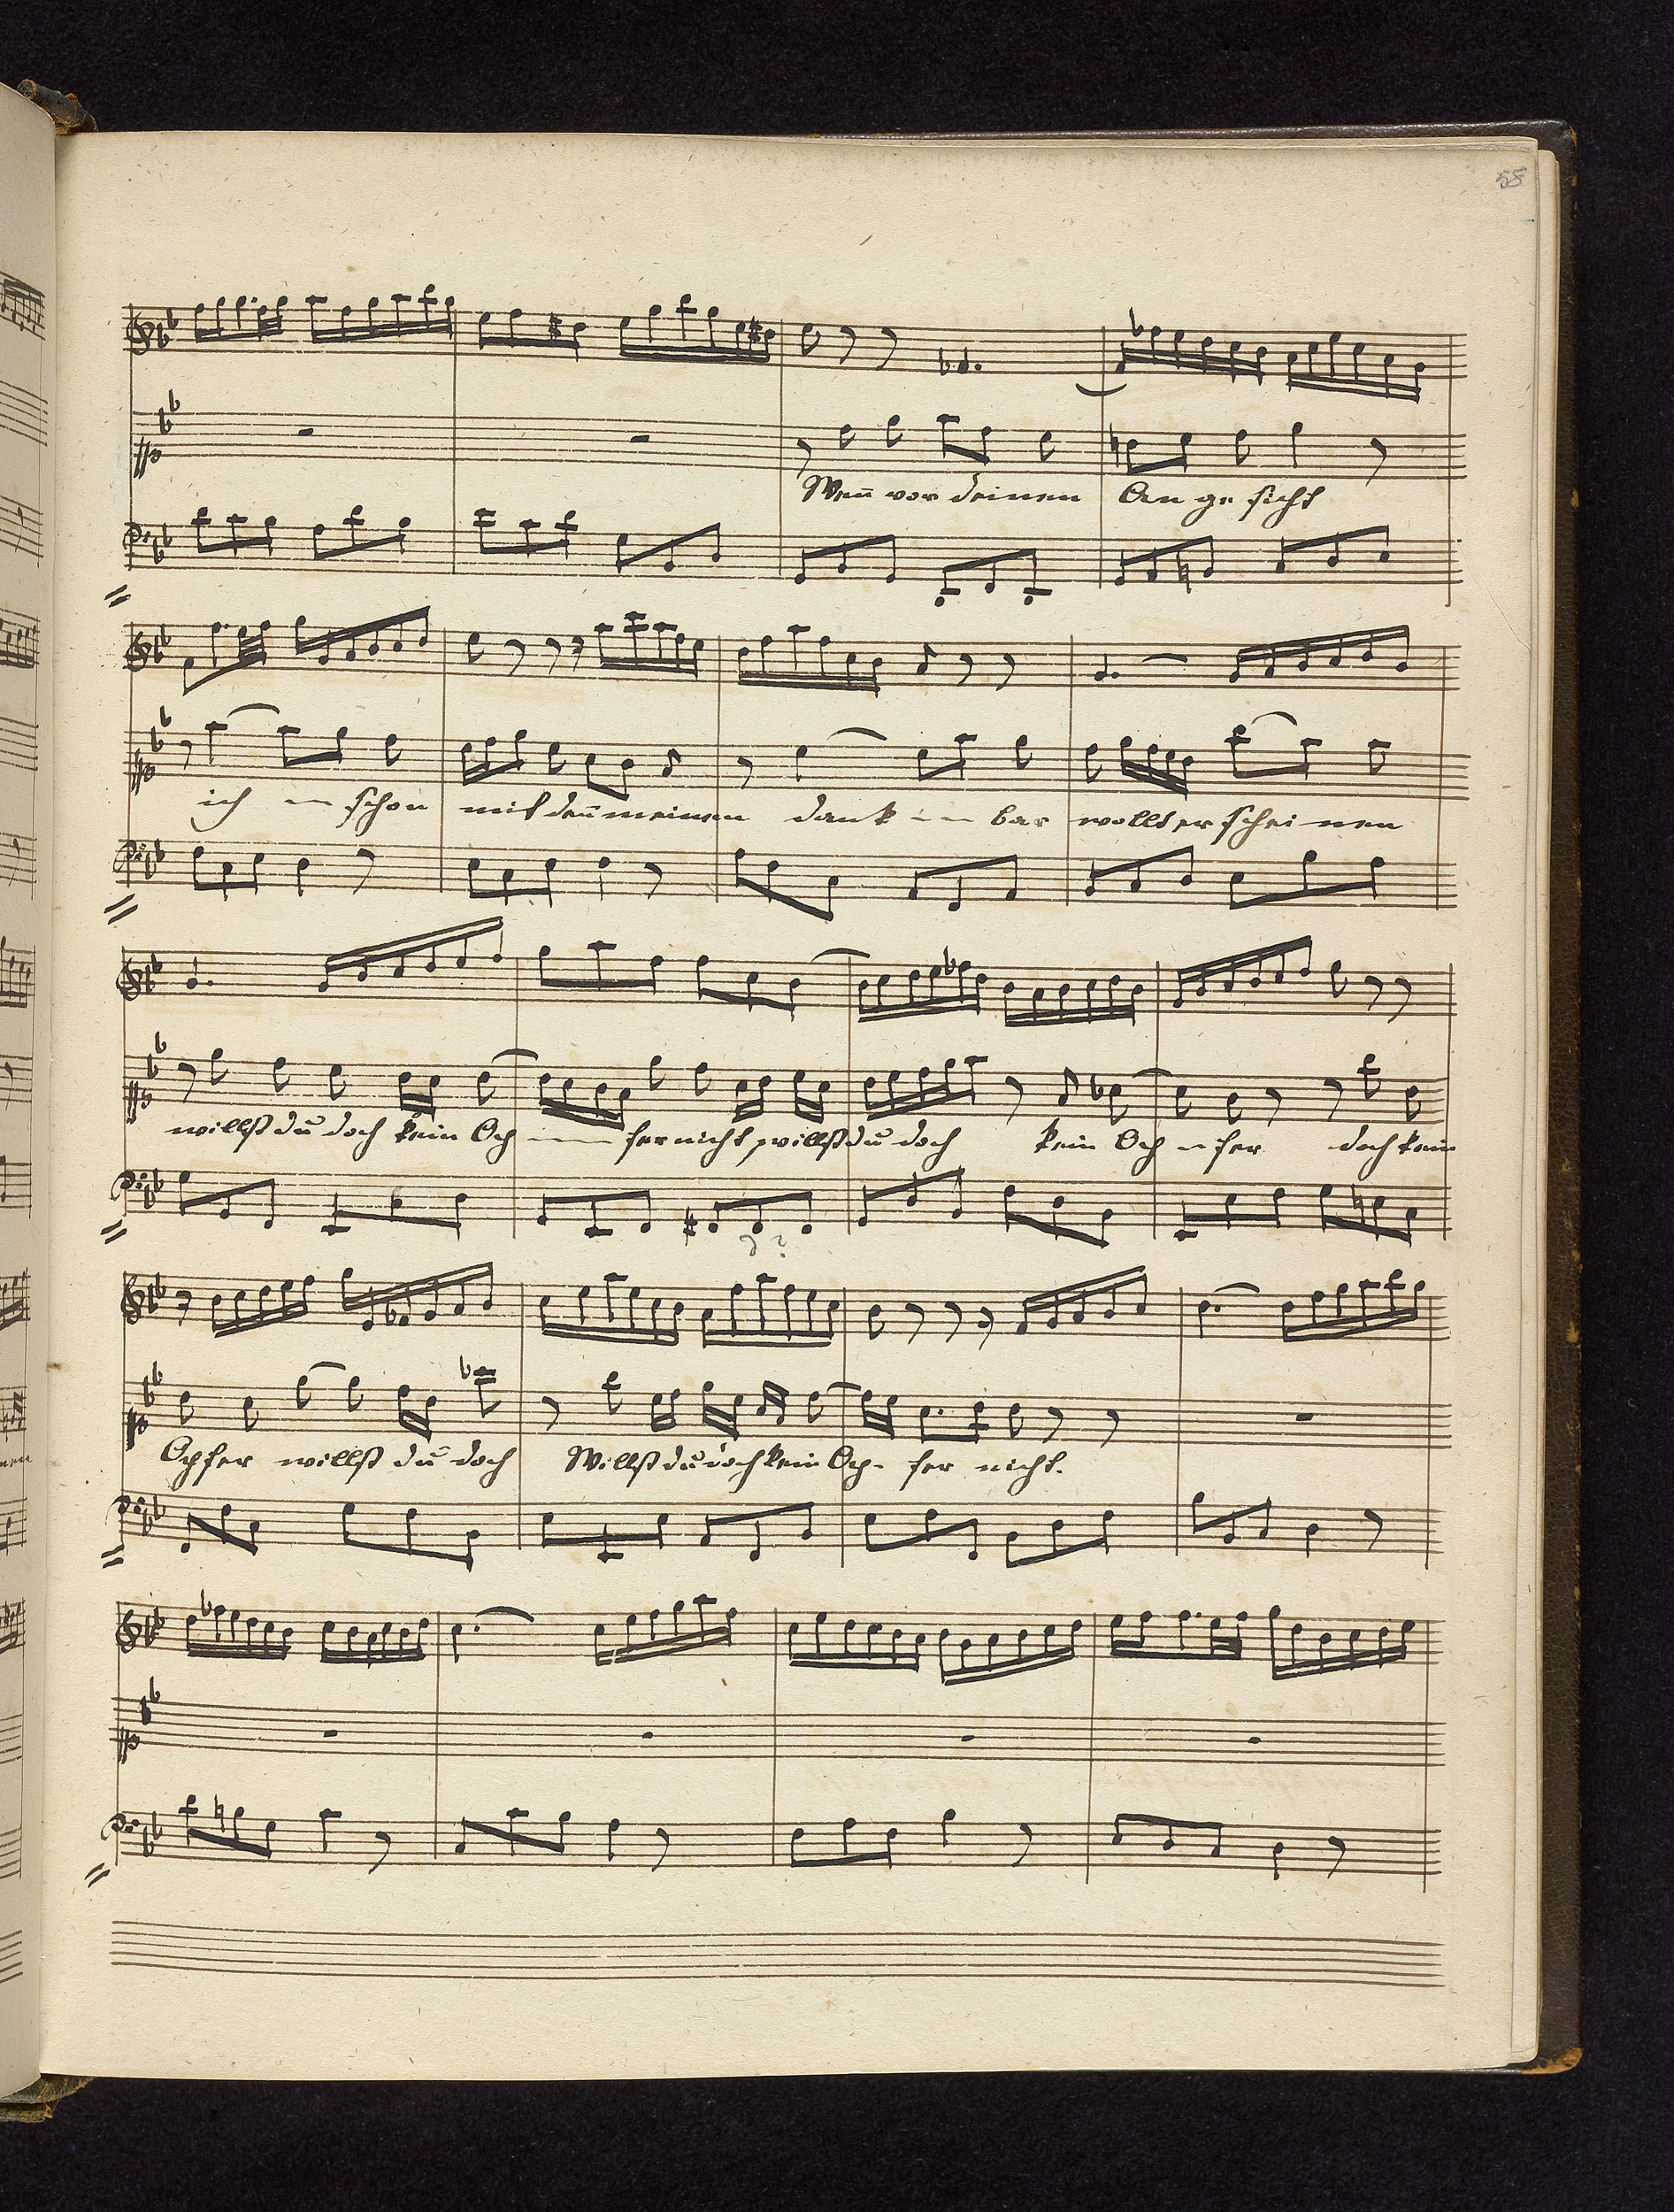 58
Wen̄ vor deinen An ge sicht
ich schon mit den̄ meinen dank bar wollt er schei nen
willst du doch kein Op fer nicht, willst du doch kein Op fer doch kein
Opfer willst du doch Willst du doch kein Op- fer nicht.
?